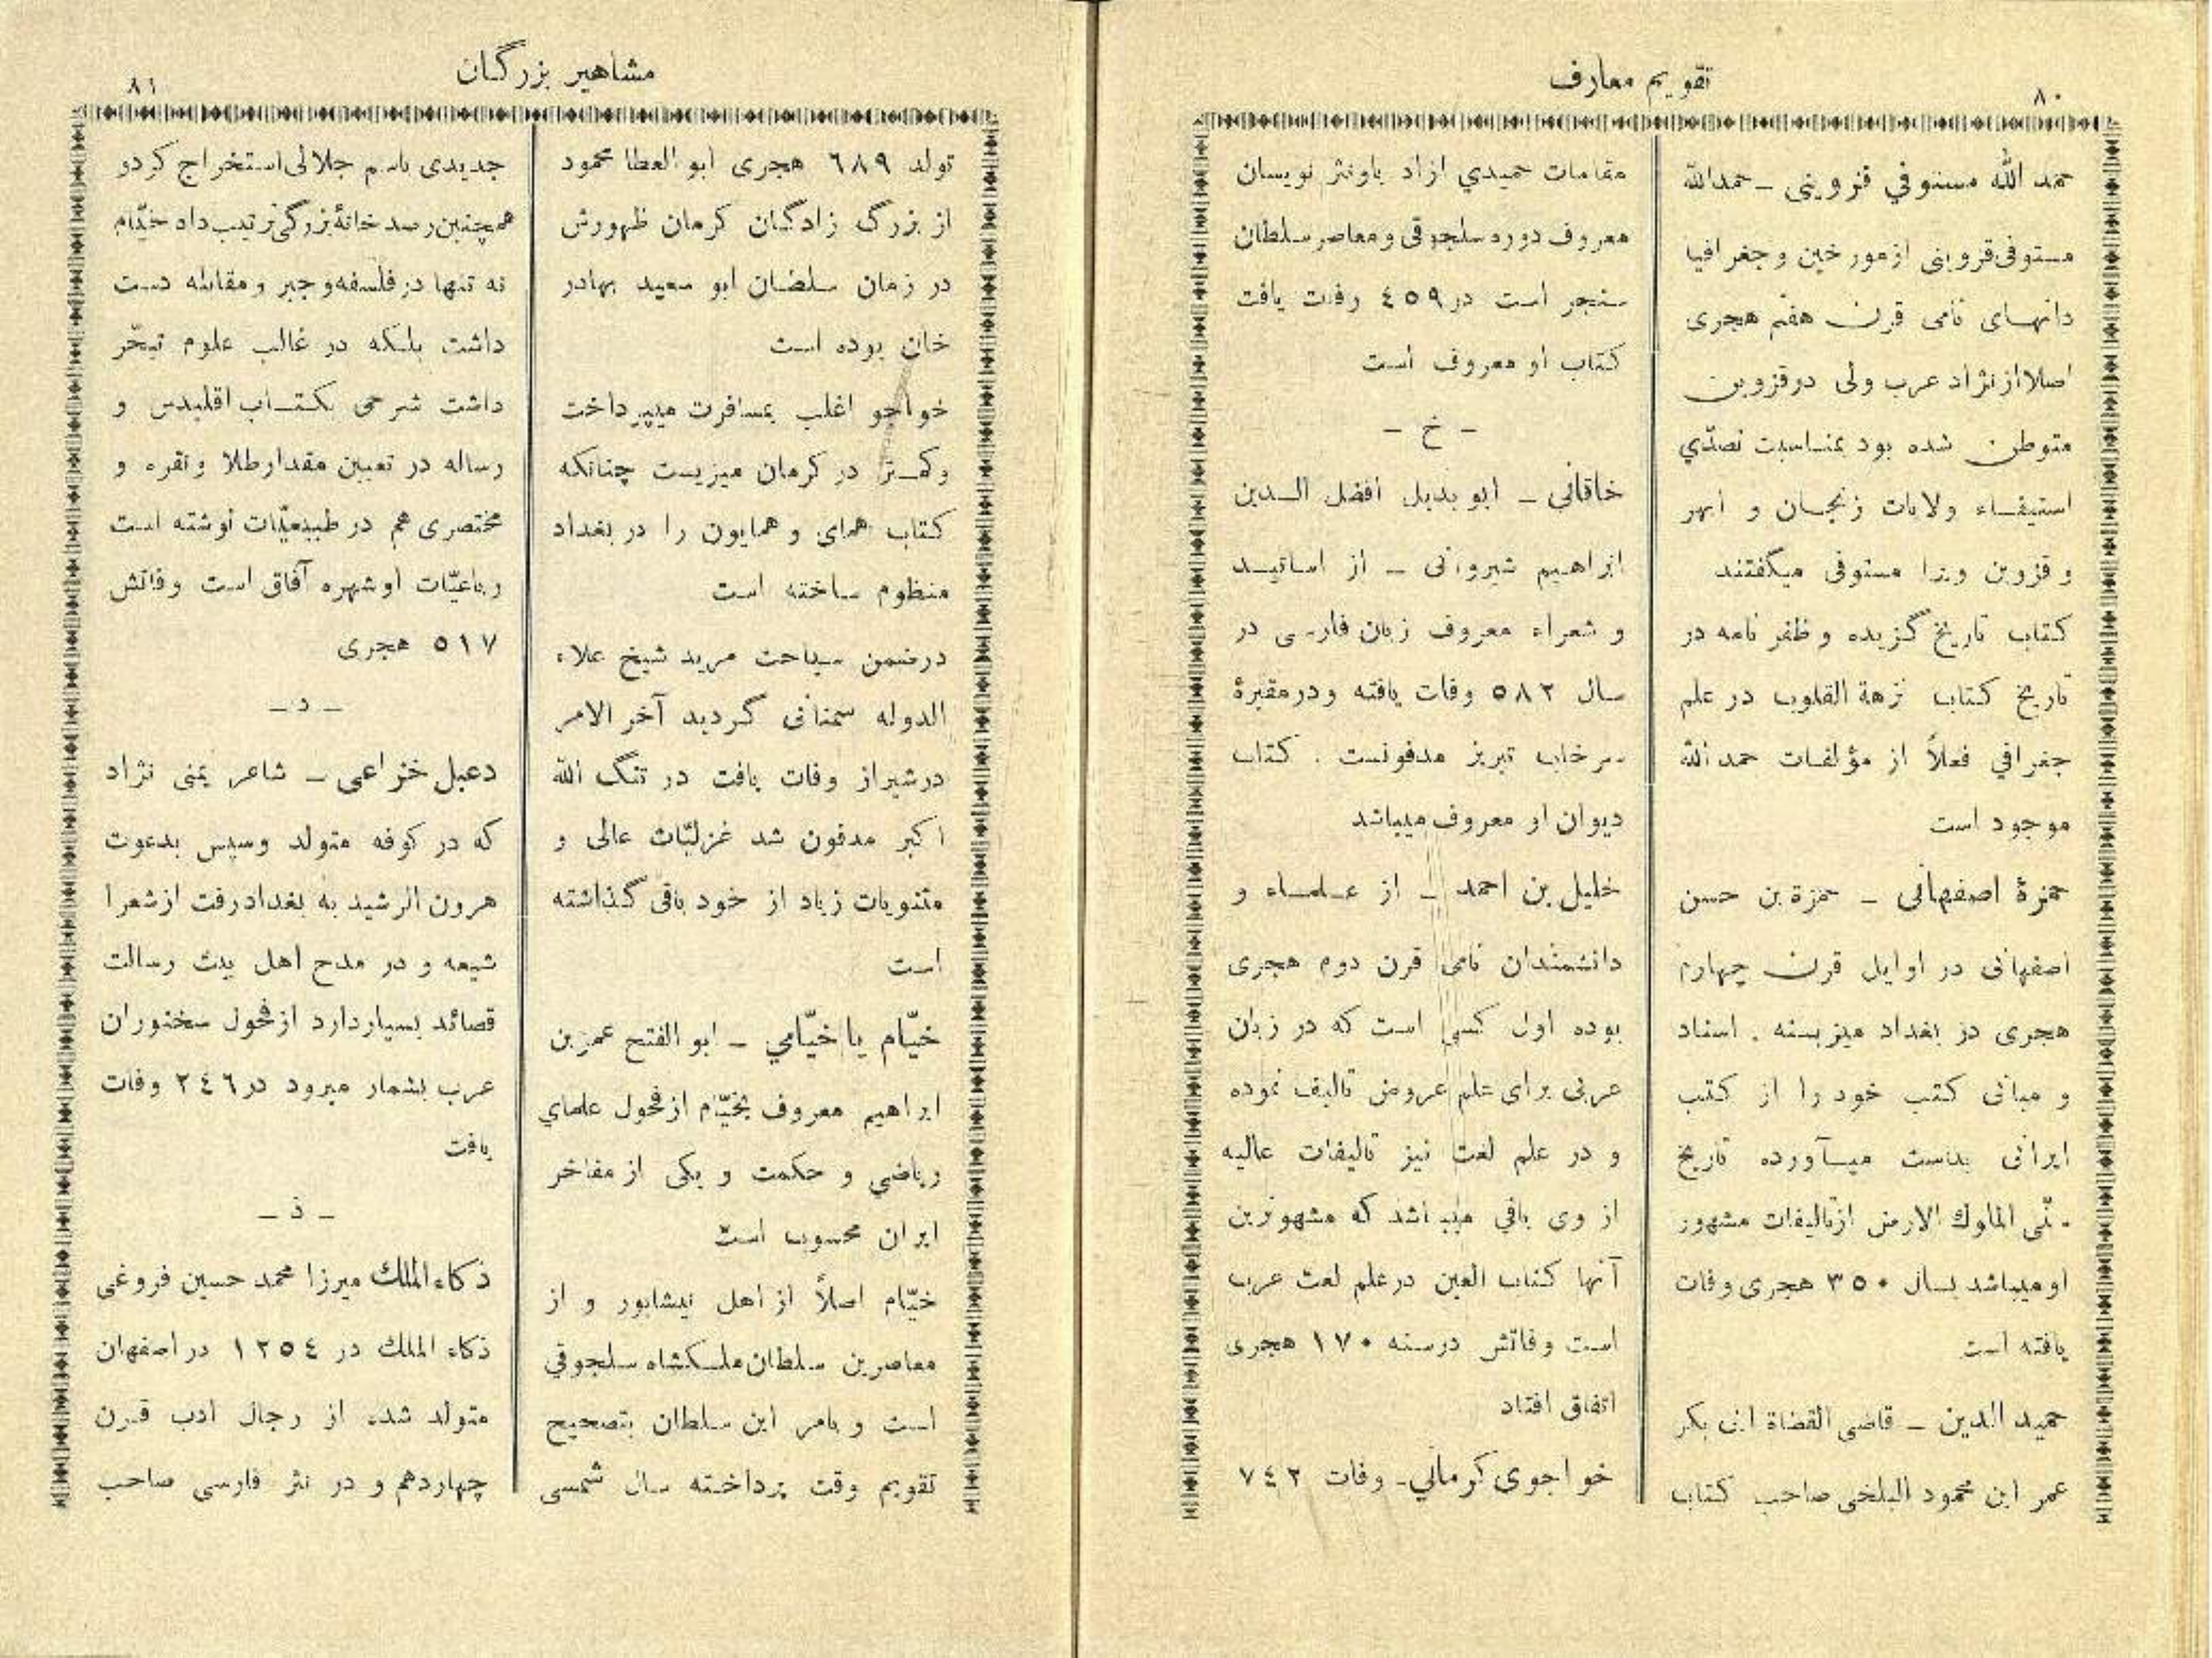 تقویم معارف
۸۰
حمد الله مستوفي قزوینی ــ حمدالله
مستوفی قزوینی از مورخین و جغرافیا
دانهای نامی قرن هفتم هجری
اصلا از نژاد عرب ولی در قزوین
متوطن شده بود بمناسبت تصدّي
استیفاء ولایات زنجان و ابهر
و قزوین ویرا مستوفی میگفتند
کتاب تاریخ گزیده و ظفر نامه در
تاریخ کتاب نزهة القلوب در علم
جغرافي فعلاً از مؤلفات حمد الله
موجود است
حمزة اصفهانی ــ حمزة بن حسن
اصفهانی در اوایل قرن چهارم
هجری در بغداد میزیسته . اسناد
و مبانی کتب خود را از کتب
ایرانی بدست میآورده تاریخ
سنّی الملوك الارض از تالیفات مشهور
او میباشد بسال ۳۵۰ هجری وفات
یافته است
حمید الدین ــ قاضی القضاة ابی بکر
عمر ابن محمود البلخی صاحب کتاب
مقامات حمیدي ازاد باونثر نویسان
معروف دوره سلجوقی و معاصر سلطان
سنجر است در ٤٥٩ وفات یافت
کتاب او معروف است
– خ –
خاقانی ــ ابو بدیل افضل الدین
ابراهیم شیروانی ــ از اساتید
و شعراء معروف زبان فارسی در
سال ۵۸۲ وفات یافته و در مقبرهٔ
سرخاب تبریز مدفونست . کتاب
دیوان او معروف میباشد
خلیل بن احمد ــ از علماء و
دانشمندان نامی قرن دوم هجری
بوده اول کسی است که در زبان
عربی برای علم عروض تالیف نموده
و در علم لغت نیز تالیفات عالیه
از وی باقي میباشد که مشهورترین
آنها کتاب العین در علم لغت عرب
است وفاتش در سنه ۱۷۰ هجری
اتفاق افتاد
خواجوی کرمانی ــ وفات ۷٤۲
مشاهیر بزرگان
۸۱
تولد ٦٨٩ هجری ابو العطا محمود
از بزرگ زادگان کرمان ظهورش
در زمان سلطان ابو سعید بهادر
خان بوده است
خواجو اغلب بمسافرت میپرداخت
و کمتر در کرمان میزیست چنانکه
کتاب همای و همایون را در بغداد
منظوم ساخته است
در ضمن سیاحت مرید شیخ علاء
الدوله سمنانی گردید آخر الامر
در شیراز وفات یافت در تنگ الله
اکبر مدفون شد غزلیّات عالی و
مثنویات زیاد از خود باقی گذاشته
است
خیّام یا خیّامي ــ ابو الفتح عمر بن
ابراهیم معروف بخیّام از فحول علمای
ریاضي و حکمت و یکی از مفاخر
ایران محسوب است
خیّام اصلاً از اهل نیشابور و از
معاصرین سلطان ملکشاه سلجوقي
است و بامر این سلطان بتصحیح
تقویم وقت پرداخته سال شمسی
جدیدی باسم جلالی استخراج کرد و
همچنین رصد خانهٔ بزرگی ترتیب داد خیّام
نه تنها در فلسفه و جبر و مقابله دست
داشت بلکه در غالب علوم تبحّر
داشت شرحی بکتاب اقلیدس و
رساله در تعیین مقدار طلا و نقره و
مختصری هم در طبیعیّات نوشته است
رباعیّات او شهره آفاق است وفاتش
۵۱۷ هجری
ــ د ــ
دعبل خزاعی ــ شاعر یمنی نژاد
که در کوفه متولد وسپس بدعوت
هرون الرشید به بغداد رفت از شعرا
شیعه و در مدح اهل بیت رسالت
قصائد بسیار دارد از فحول سخنوران
عرب بشمار میرود در ۲٤٦ وفات
یافت
ــ ذ ــ
ذکاء الملك میرزا محمد حسین فروغی
ذکاء الملك در ۱۲٥٤ در اصفهان
متولد شده از رجال ادب قرن
چهاردهم و در نثر فارسی صاحب